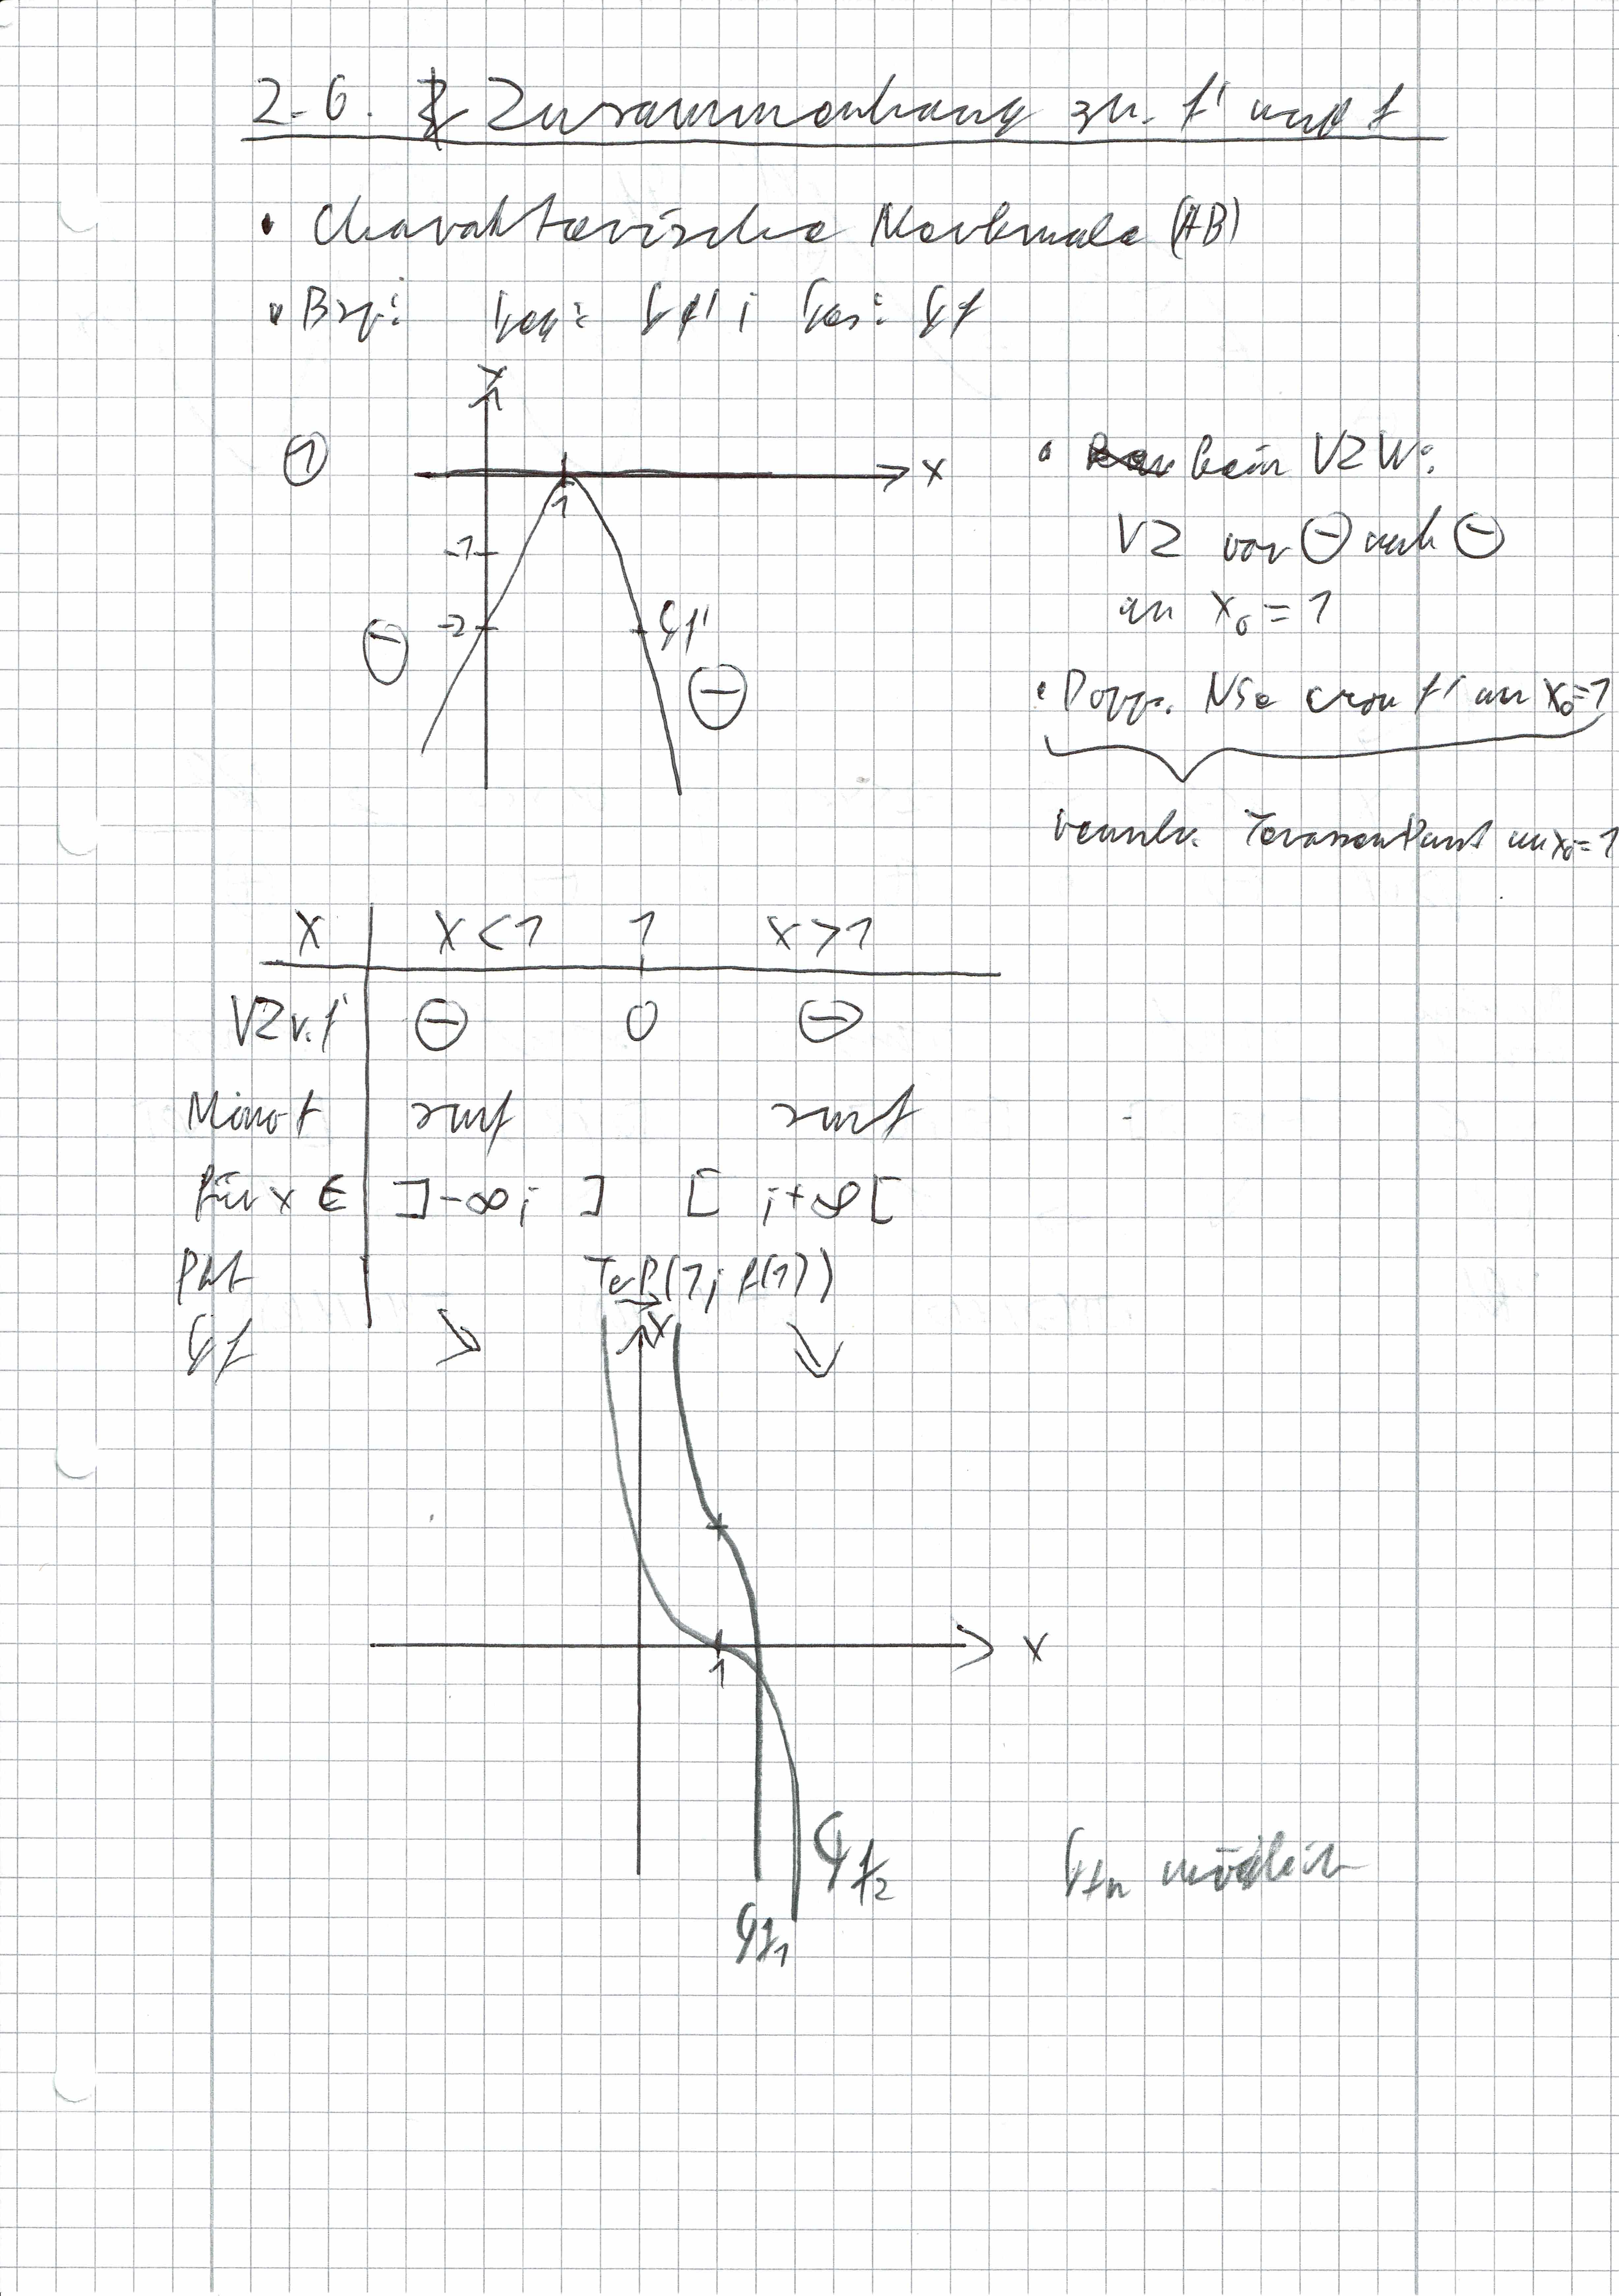 2.6. Zusammenhang zw. f' und f
• Charakteristische Merkmale (AB)
• Bsp: geg: Gf' ; Ges: Gf
y
①
x
1
-1
-2
⊖
Gf'
⊖
• kein VZW:
VZ von ⊖ nach ⊖
an x₀ = 1
• Dopp. NSe von f' an x₀=1
Terassenpunkt an x₀=1
x | x<1 1 x>1
VZ v. f' | ⊖ 0 ⊖
Mono f | smf smf
für x ∈ | ]-∞; ] [ ;+∞[
Pkt TeP(1; f(1))
Gf ↘ ↘
y
x
1
Gf₂
Gf₁
Gfn möglich